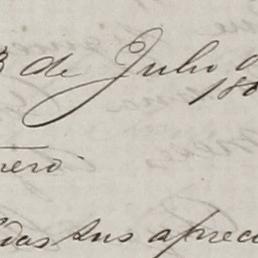 3 de Julio d
18
nero
das sus aprec